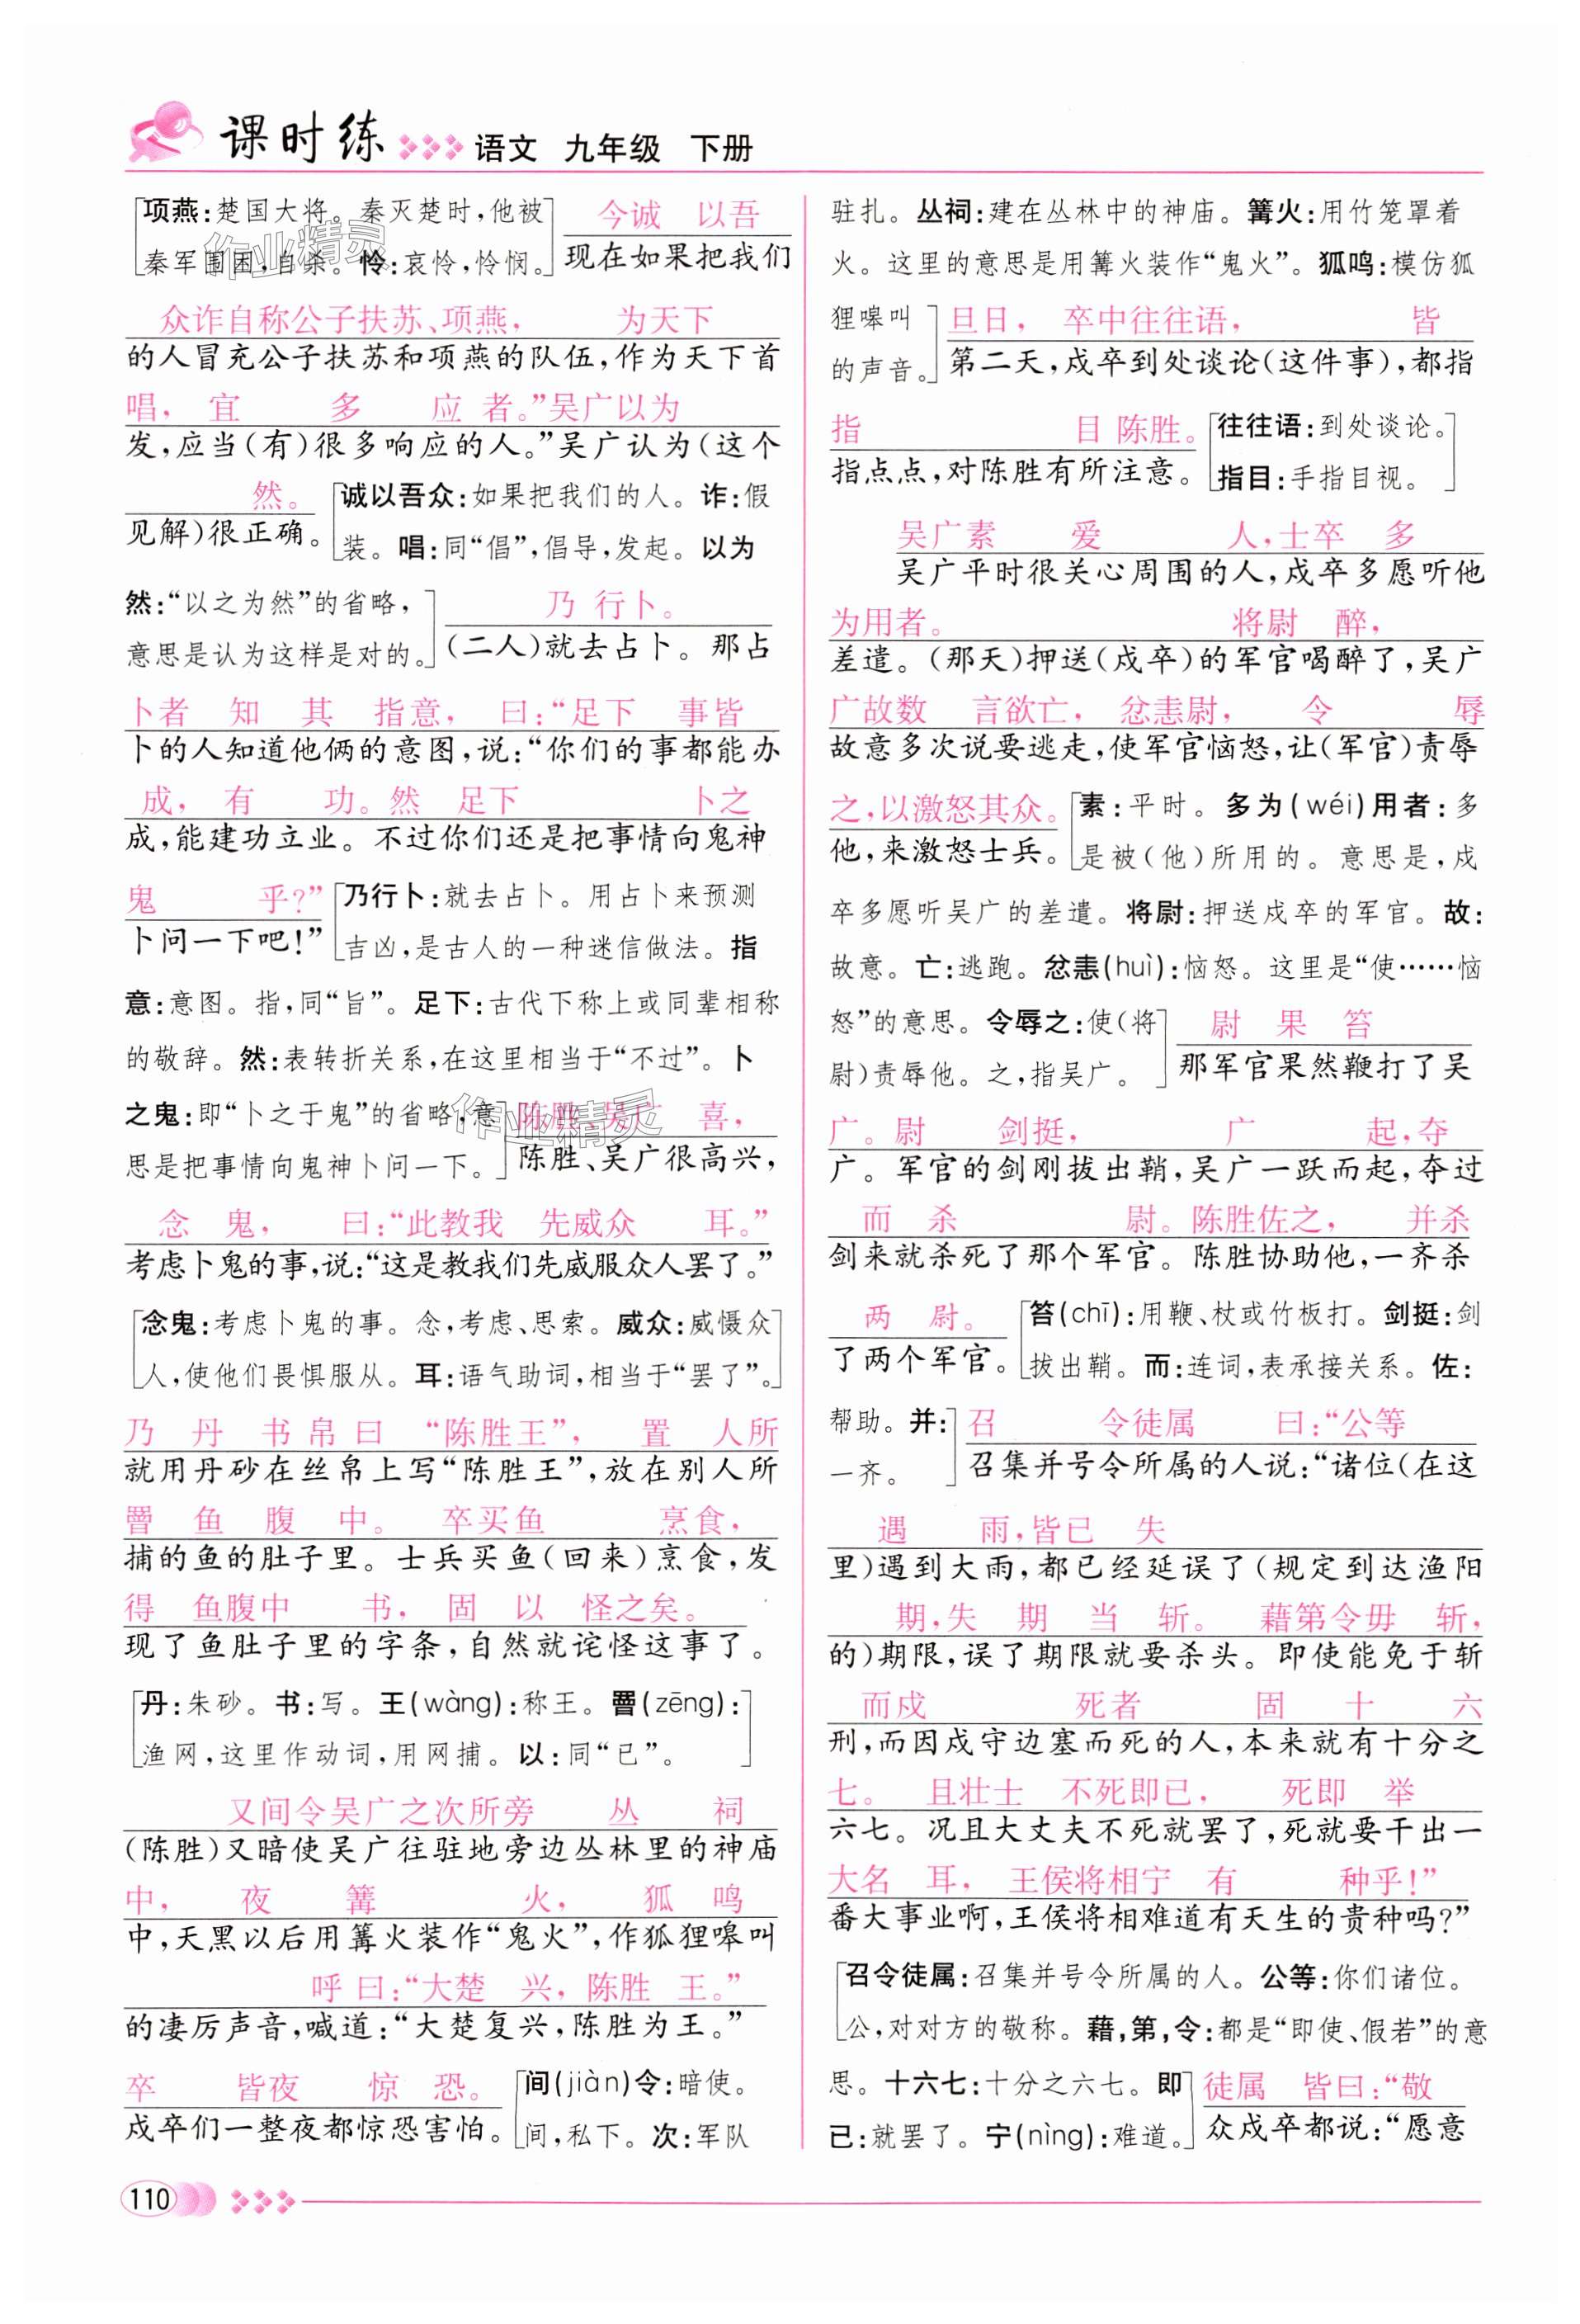 课时练 语文 九年级 下册
项燕:楚国大将。秦灭楚时,他被
秦军围困,自杀。怜:哀怜,怜悯。
今诚 以吾
现在如果把我们
众诈自称公子扶苏、项燕, 为天下
的人冒充公子扶苏和项燕的队伍,作为天下首
唱, 宜 多 应 者。”吴广以为
发,应当(有)很多响应的人。”吴广认为(这个
然。
见解)很正确。
诚以吾众:如果把我们的人。诈:假
装。唱:同“倡”,倡导,发起。以为
然:“以之为然”的省略,
意思是认为这样是对的。
乃 行卜。
(二人)就去占卜。那占
卜者 知 其 指意, 曰:“足下 事皆
卜的人知道他俩的意图,说:“你们的事都能办
成, 有 功。然 足下 卜之
成,能建功立业。不过你们还是把事情向鬼神
鬼 乎?”
卜问一下吧!”
乃行卜:就去占卜。用占卜来预测
吉凶,是古人的一种迷信做法。指
意:意图。指,同“旨”。足下:古代下称上或同辈相称
的敬辞。然:表转折关系,在这里相当于“不过”。卜
之鬼:即“卜之于鬼”的省略,意
思是把事情向鬼神卜问一下。
陈胜、吴广 喜,
陈胜、吴广很高兴,
念 鬼, 曰:“此教我 先威众 耳。”
考虑卜鬼的事,说:“这是教我们先威服众人罢了。”
念鬼:考虑卜鬼的事。念,考虑、思索。威众:威慑众
人,使他们畏惧服从。耳:语气助词,相当于“罢了”。
乃 丹 书 帛 曰 “陈胜王”, 置 人所
就用丹砂在丝帛上写“陈胜王”,放在别人所
罾 鱼 腹 中。 卒买鱼 烹食,
捕的鱼的肚子里。士兵买鱼(回来)烹食,发
得 鱼腹中 书, 固 以 怪之矣。
现了鱼肚子里的字条,自然就诧怪这事了。
丹:朱砂。书:写。王(wàng):称王。罾(zēng):
渔网,这里作动词,用网捕。以:同“已”。
又间令吴广之次所旁 丛 祠
(陈胜)又暗使吴广往驻地旁边丛林里的神庙
中, 夜 篝 火, 狐 鸣
中,天黑以后用篝火装作“鬼火”,作狐狸嗥叫
呼 曰:“大楚 兴, 陈胜 王。”
的凄厉声音,喊道:“大楚复兴,陈胜为王。”
卒 皆夜 惊 恐。
戍卒们一整夜都惊恐害怕。
间(jiàn)令:暗使。
间,私下。次:军队
驻扎。丛祠:建在丛林中的神庙。篝火:用竹笼罩着
火。这里的意思是用篝火装作“鬼火”。狐鸣:模仿狐
狸嗥叫
的声音。
旦日, 卒中往往语, 皆
第二天,戍卒到处谈论(这件事),都指
指 目 陈胜。
指点点,对陈胜有所注意。
往往语:到处谈论。
指目:手指目视。
吴广素 爱 人,士卒 多
吴广平时很关心周围的人,戍卒多愿听他
为用者。 将尉 醉,
差遣。(那天)押送(戍卒)的军官喝醉了,吴广
广故数 言欲亡, 忿恚尉, 令 辱
故意多次说要逃走,使军官恼怒,让(军官)责辱
之,以激怒其众。
他,来激怒士兵。
素:平时。多为(wéi)用者:多
是被(他)所用的。意思是,戍
卒多愿听吴广的差遣。将尉:押送戍卒的军官。故:
故意。亡:逃跑。忿恚(huì):恼怒。这里是“使……恼
怒”的意思。令辱之:使(将
尉)责辱他。之,指吴广。
尉 果 笞
那军官果然鞭打了吴
广。尉 剑挺, 广 起,夺
广。军官的剑刚拔出鞘,吴广一跃而起,夺过
而 杀 尉。陈胜佐之, 并杀
剑来就杀死了那个军官。陈胜协助他,一齐杀
两 尉。
了两个军官。
笞(chī):用鞭、杖或竹板打。剑挺:剑
拔出鞘。而:连词,表承接关系。佐:
帮助。并:
一齐。
召 令徒属 曰:“公等
召集并号令所属的人说:“诸位(在这
遇 雨,皆已 失
里)遇到大雨,都已经延误了(规定到达渔阳
期,失 期 当 斩。 藉第令毋 斩,
的)期限,误了期限就要杀头。即使能免于斩
而戍 死者 固 十 六
刑,而因戍守边塞而死的人,本来就有十分之
七。 且壮士 不死即已, 死即 举
六七。况且大丈夫不死就罢了,死就要干出一
大名 耳, 王侯将相宁 有 种乎!”
番大事业啊,王侯将相难道有天生的贵种吗?”
召令徒属:召集并号令所属的人。公等:你们诸位。
公,对对方的敬称。藉,第,令:都是“即使、假若”的意
思。十六七:十分之六七。即
已:就罢了。宁(nìng):难道。
徒属 皆曰:“敬
众戍卒都说:“愿意
110
作业精灵
作业精灵